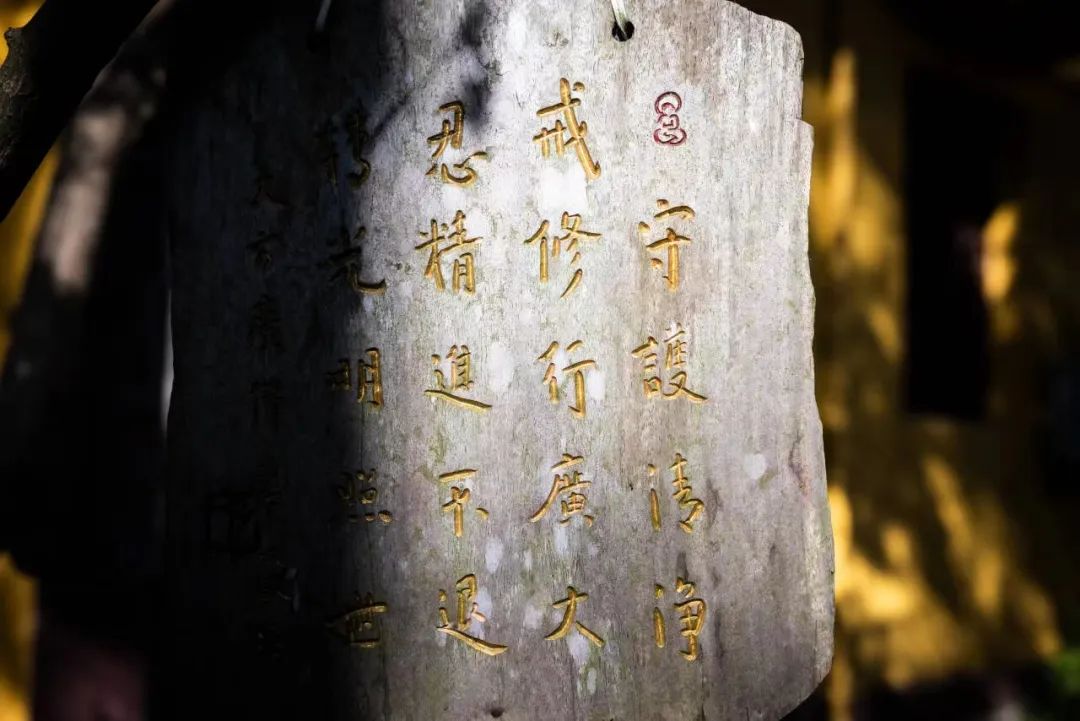 守護清淨
戒修行廣大
忍精進不退
轉光明照世
大方